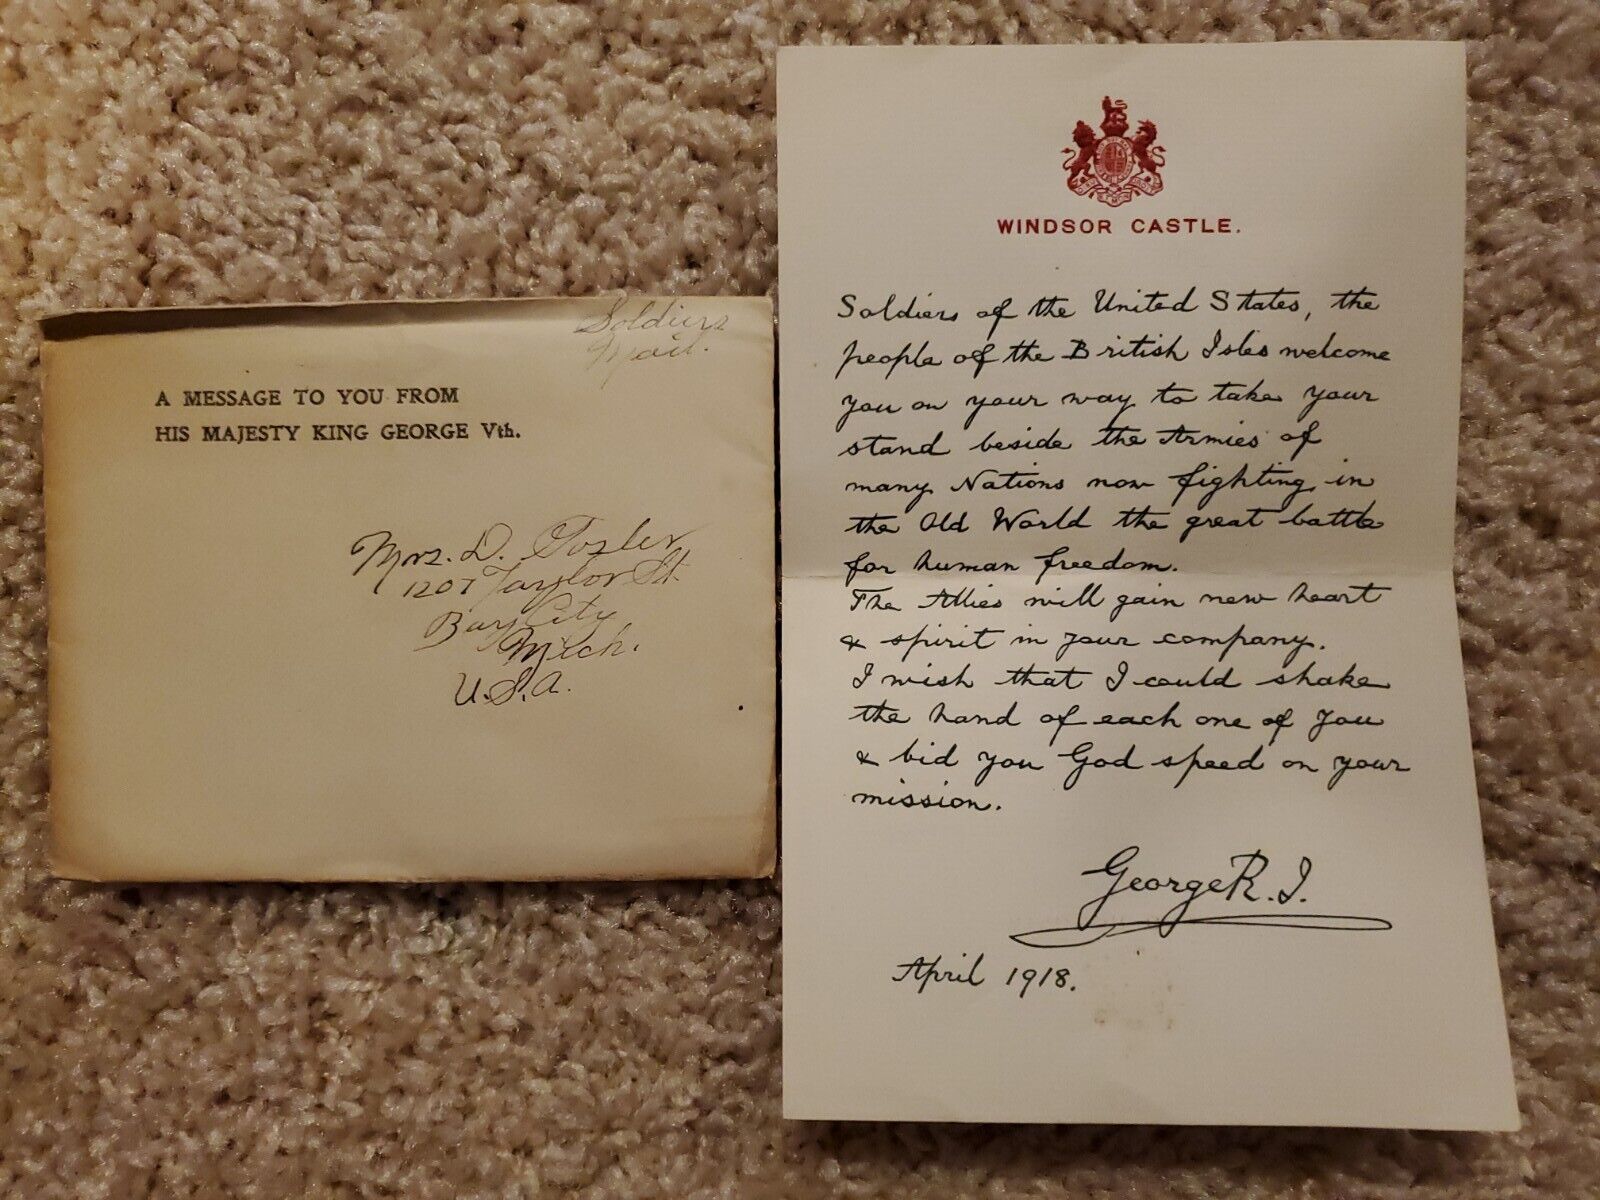 Soldiers
Mail.
A MESSAGE TO YOU FROM
HIS MAJESTY KING GEORGE Vth.
Mrs. D.
1207 Taylor St.
Bay City
Mich.
U.S.A.
WINDSOR CASTLE.
Soldiers of the United States, the
people of the British Isles welcome
you on your way to take your
stand beside the Armies of
many Nations now fighting in
the Old World the great battle
for human freedom.
The Allies will gain new heart
& spirit in your company.
I wish that I could shake
the hand of each one of you
& bid you God speed on your
mission.
George R.I.
April 1918.